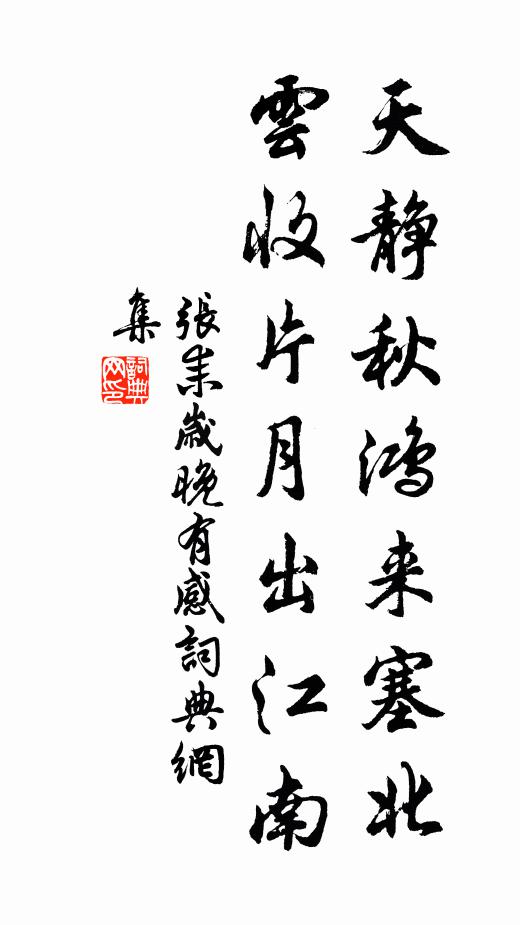 天静秋鴻来塞北
雲收片月出江南
張耒歲晚有感詞典網
集
詞典網印